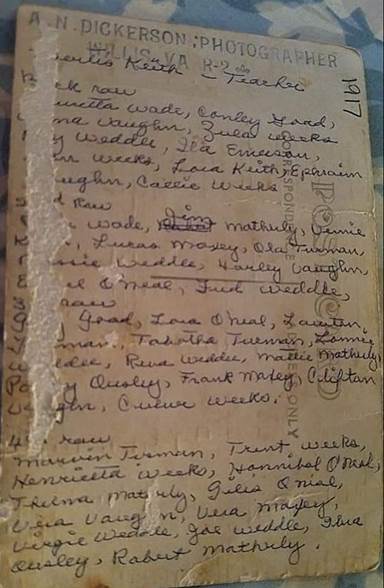 A. N. DICKERSON, PHOTOGRAPHER
WILLIS, VA. R-2
1917
Keith - Teacher
ck row
Wade, Conley Goad,
Vaughn, Zula Weeks
Weddle, Ila Emerson,
Weeks, Lora Keith, Ephraim
aughn, Callie Weeks
row
Wade, Jim Matherly,
Lucas Maxey, Ola Turman,
Weddle, Harley Vaughn,
O'Neal, Fred Weddle,
row
Goad, Lora O'Neal,
Tabitha Turman, Lonnie
Reva Weddle, Mattie Matherly,
Quesley, Frank Maxey, Cliftan
Weeks.
CORRESPONDENCE
ONLY
4th row
Marvin Turman, Trent Weeks,
Henrietta Weeks, Hannibal O'Neal,
Thelma Matherly, O'Neal,
Vera Vaughn, Vera Maxey,
Virgie Weddle, Joe Weddle,
Quesley, Robert Matherly.